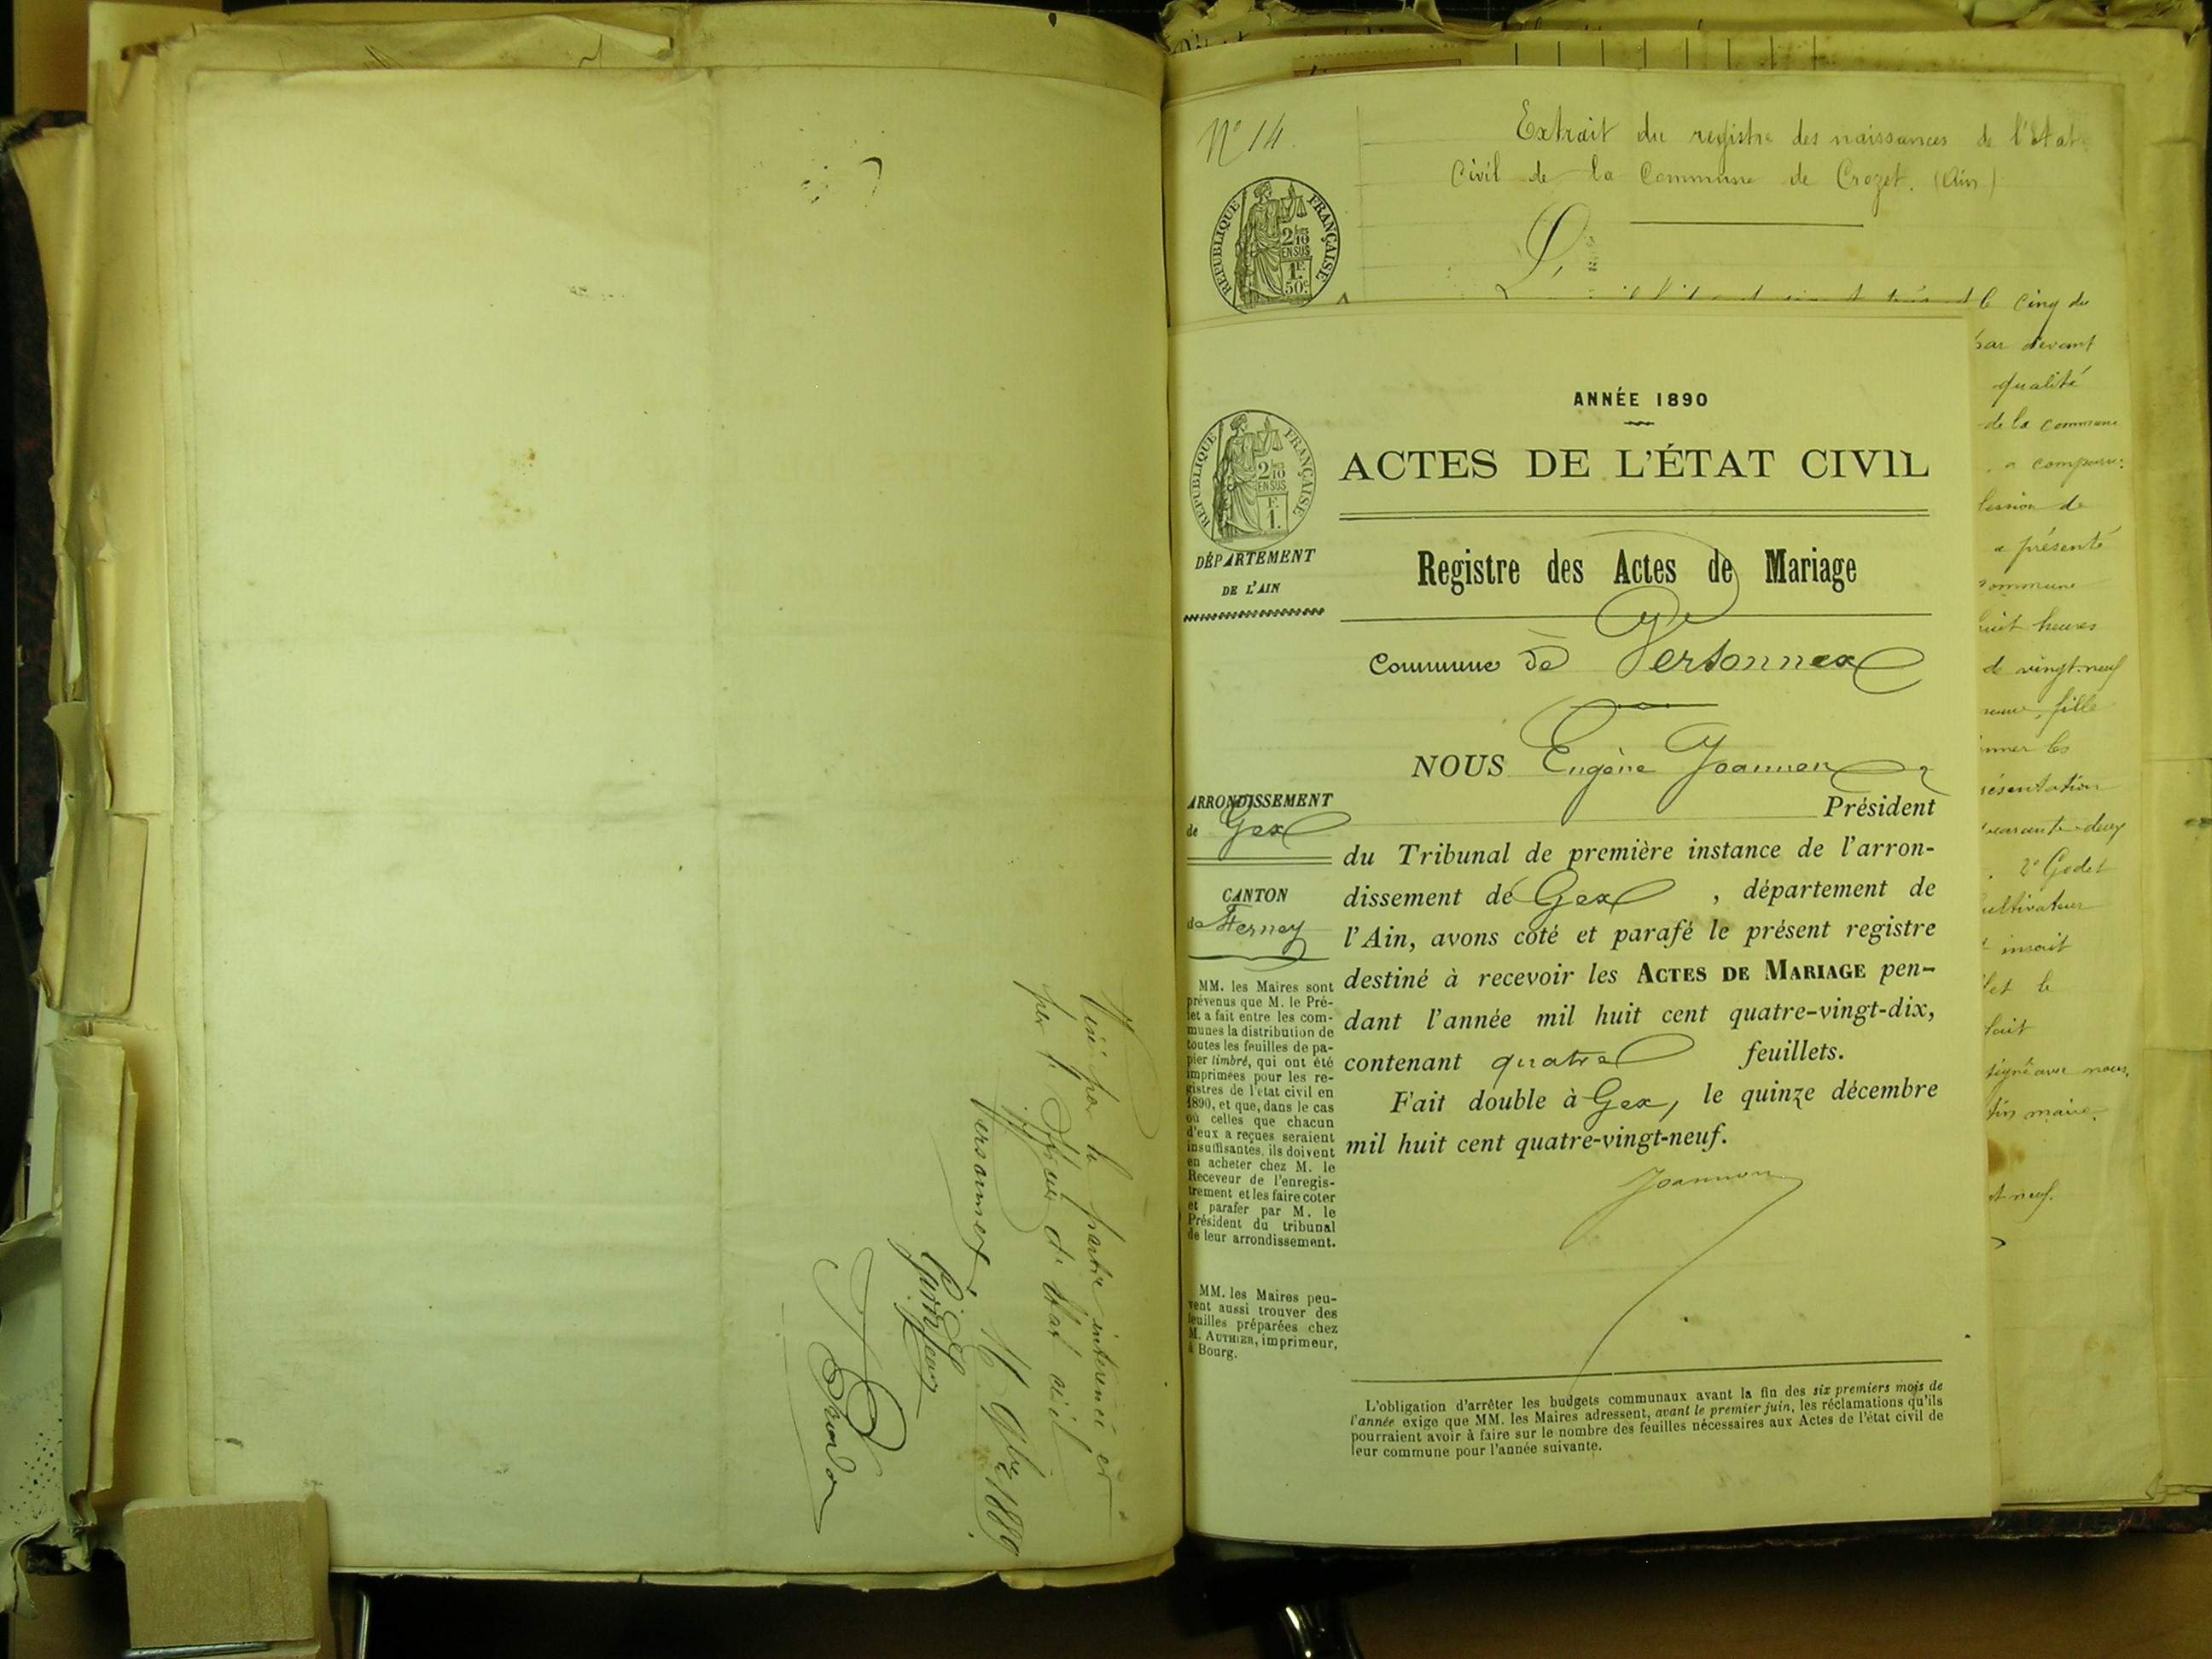 Visé par la partie intéressée et
par l'officier de l'état civil
Versonnex, 16 9bre 1889
N° 14.
Extrait du registre des naissances de l'état
Civil de la Commune de Crozet. (Ain)
RÉPUBLIQUE FRANÇAISE
2/10
EN SUS
1F
50c
le cinq du
par devant
qualité
de la commune
a comparu:
a présenté
commune
huit heures
de vingt-neuf
fille
les
quarante-deux
2° Godet
cultivateur
inscrit
et le
fait
signé avec nous,
maire.
et neuf.
ANNÉE 1890
ACTES DE L'ÉTAT CIVIL
RÉPUBLIQUE FRANÇAISE
2/10
EN SUS
F.
1.
DÉPARTEMENT
DE L'AIN
Registre des Actes de Mariage
Commune de Versonnex
NOUS Eugène Joannon
Président
ARRONDISSEMENT
de Gex
CANTON
de Ferney
du Tribunal de première instance de l'arron-
dissement de Gex , département de
l'Ain, avons coté et parafé le présent registre
destiné à recevoir les ACTES DE MARIAGE pen-
dant l'année mil huit cent quatre-vingt-dix,
contenant quatre feuillets.
Fait double à Gex, le quinze décembre
mil huit cent quatre-vingt-neuf.
Joannon
MM. les Maires sont
prévenus que M. le Pré-
fet a fait entre les com-
munes la distribution de
toutes les feuilles de pa-
pier timbré, qui ont été
imprimées pour les re-
gistres de l'état civil en
1890, et que, dans le cas
où celles que chacun
d'eux a reçues seraient
insuffisantes, ils doivent
en acheter chez M. le
Receveur de l'enregis-
trement et les faire coter
et parafer par M. le
Président du tribunal
de leur arrondissement.
MM. les Maires peu-
vent aussi trouver des
feuilles préparées chez
M. AUTHIER, imprimeur,
à Bourg.
L'obligation d'arrêter les budgets communaux avant la fin des six premiers mois de
l'année exige que MM. les Maires adressent, avant le premier juin, les réclamations qu'ils
pourraient avoir à faire sur le nombre des feuilles nécessaires aux Actes de l'état civil de
leur commune pour l'année suivante.